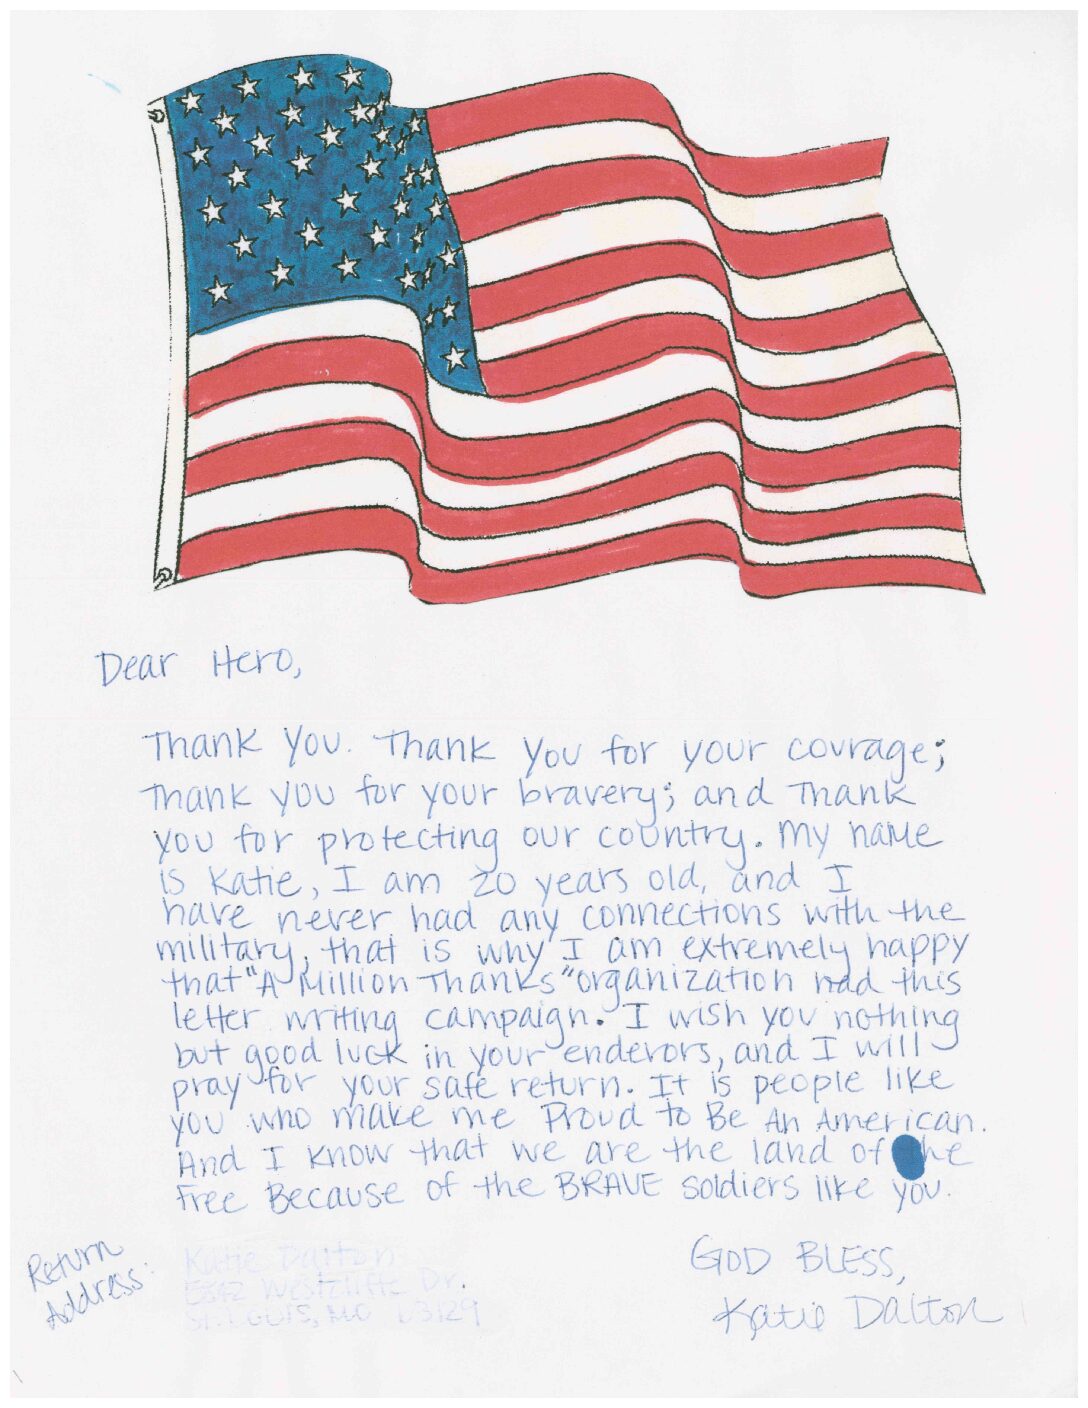 Dear Hero,
Thank you. Thank you for your courage;
Thank you for your bravery; and Thank
you for protecting our country. My name
is Katie, I am 20 years old, and I
have never had any connections with the
military, that is why I am extremely happy
that "A Million Thanks" organization had this
letter writing campaign. I wish you nothing
but good luck in your enderors, and I will
pray for your safe return. It is people like
you who make me Proud to Be An American.
And I know that we are the land of the
Free Because of the BRAVE soldiers like you.
GOD BLESS,
Katie Dalton
Return
Address:
Katie Dalton
Westcliffe Dr.
St. Louis, MO 63129